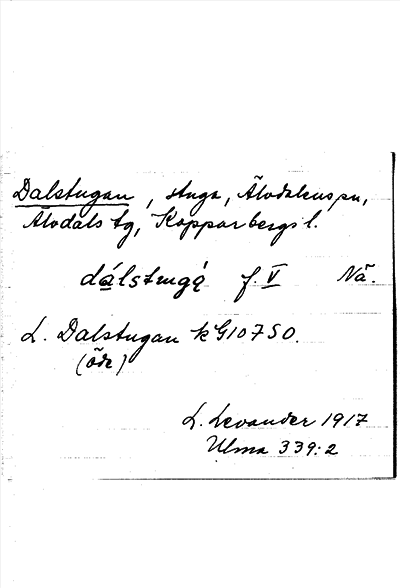 Dalstugan, stuga, Älvdalens sn,
Älvdals tg, Kopparbergs l.
dálstugą́ f. V Nä.
L. Dalstugan k G10750.
(öde)
L. Levander 1917
Ulma 339:2